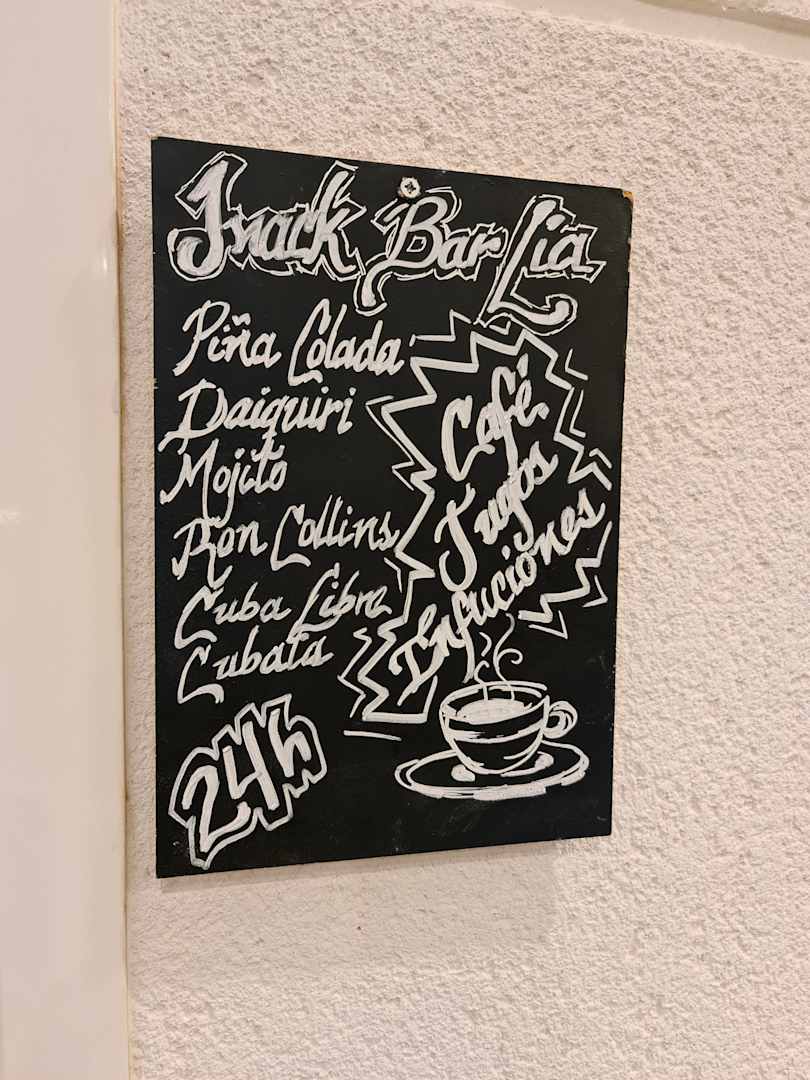 Snack Bar Lia
Piña Colada
Daiquiri
Mojito
Ron Collins
Cuba Libre
Cubata
24h
Café
Jugos
Infuciones